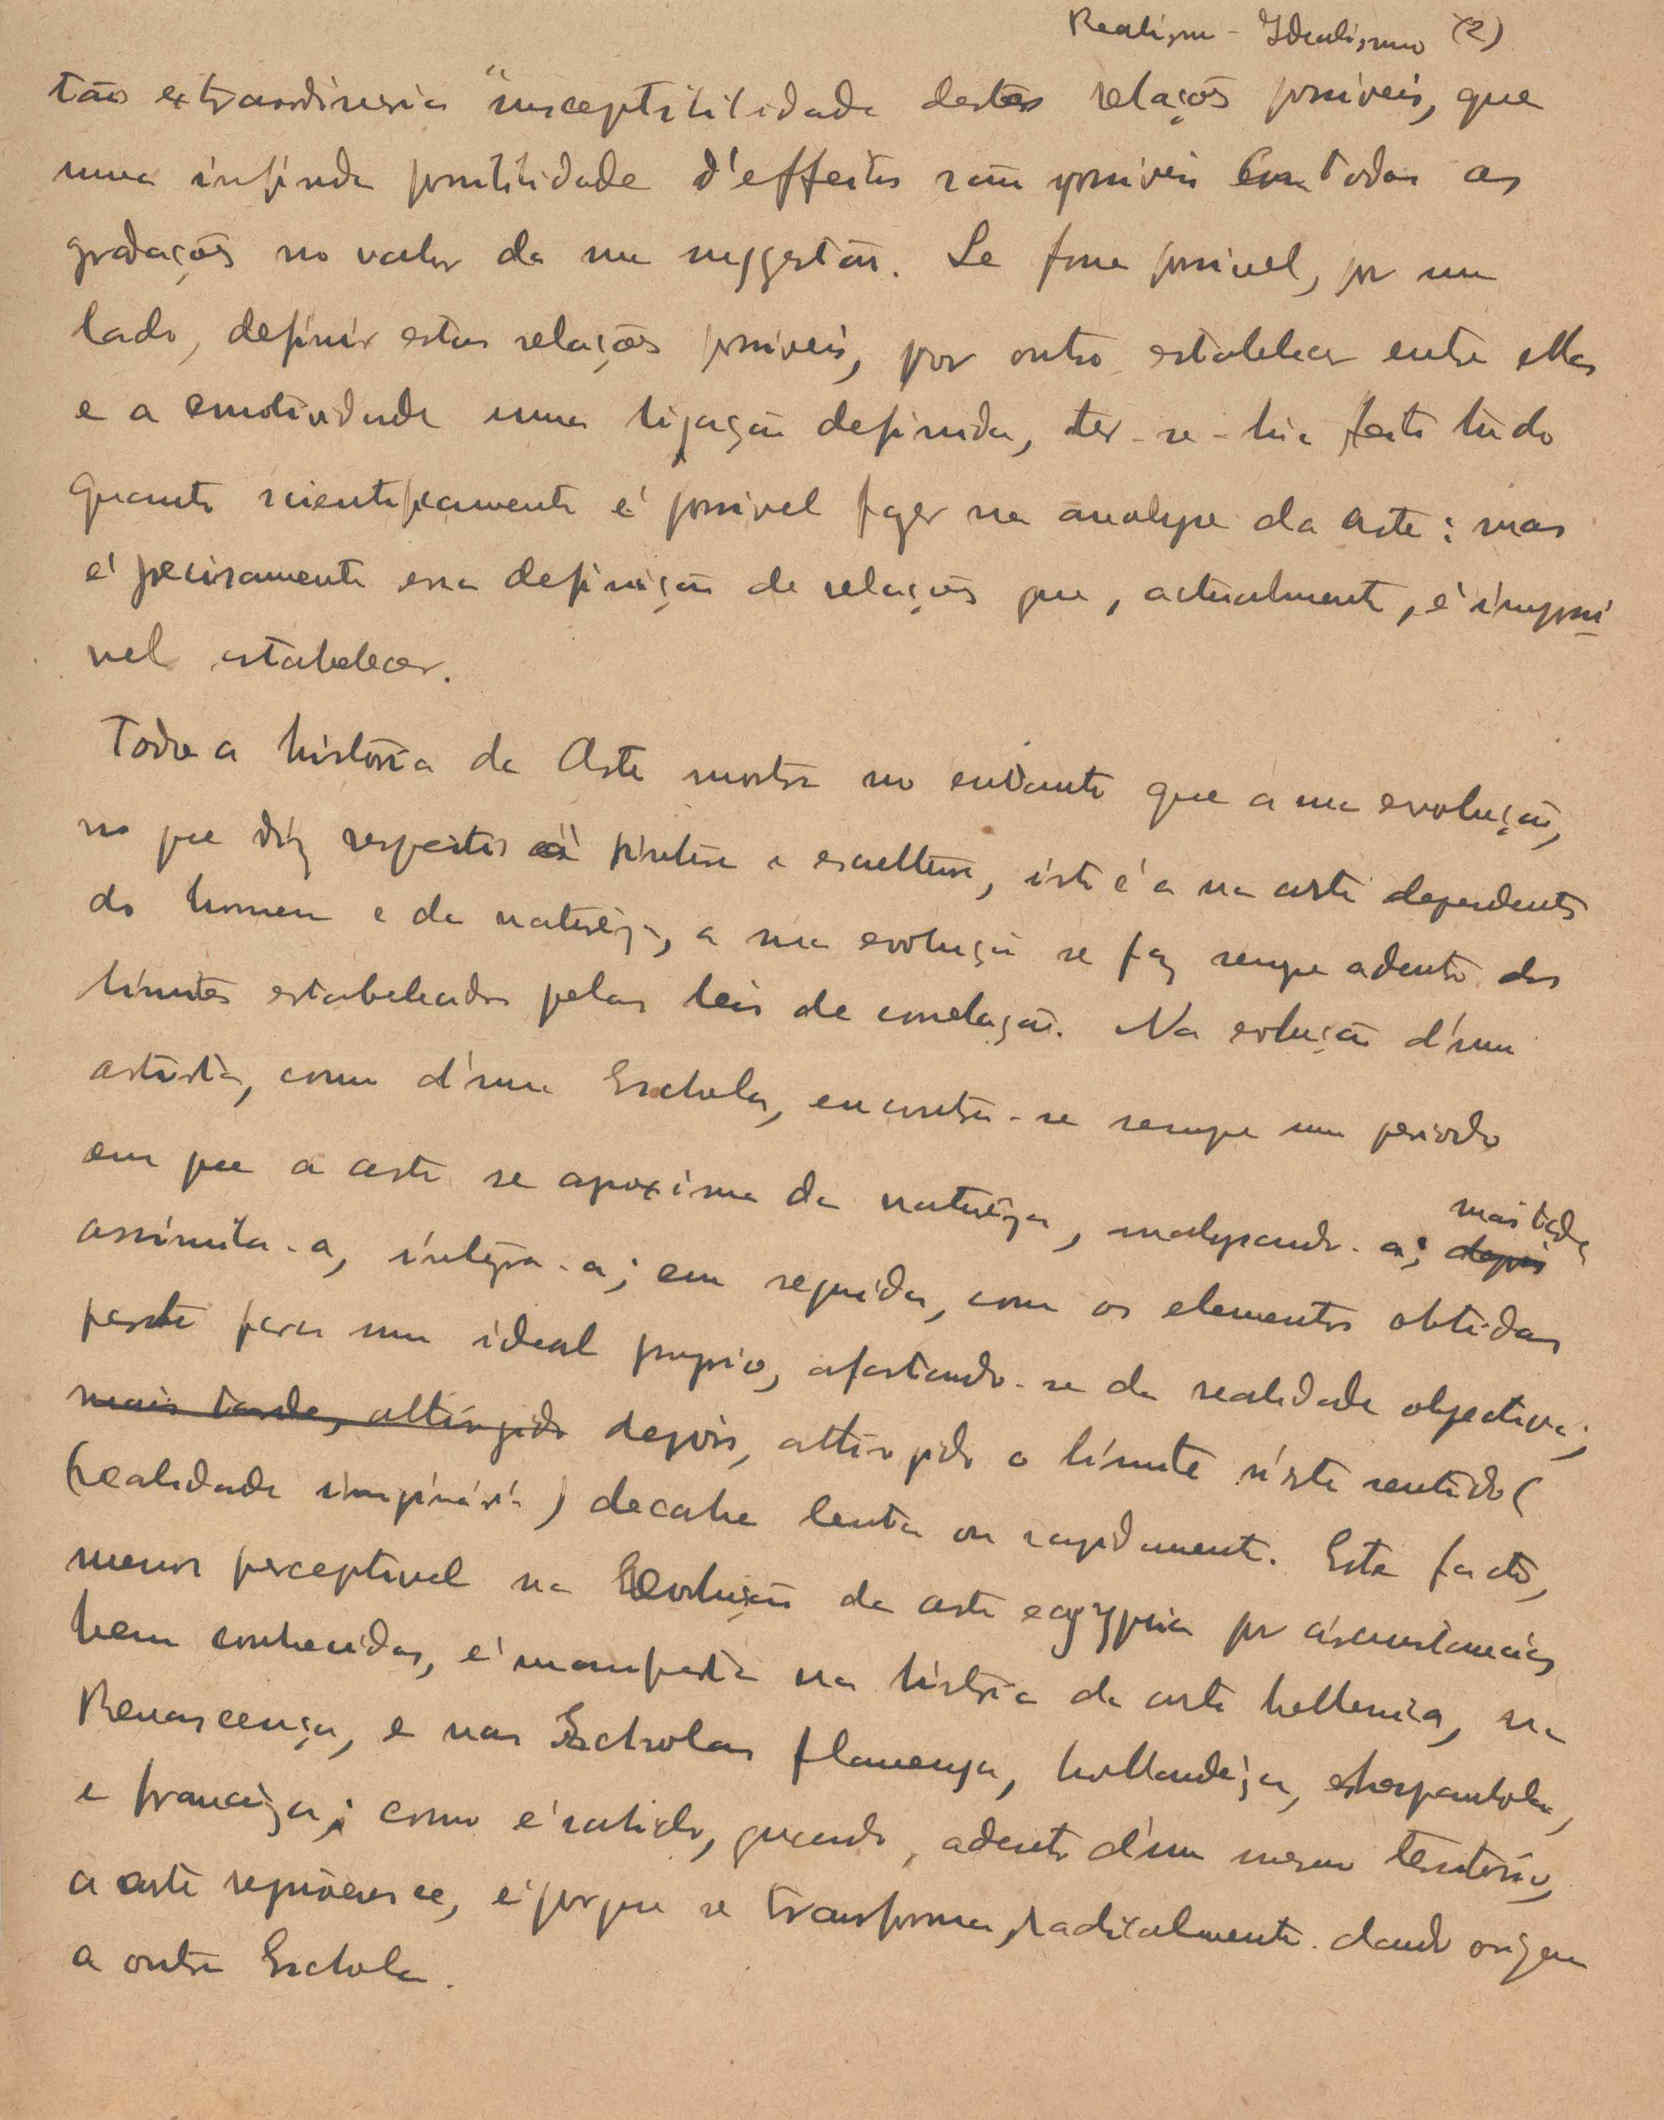 Realismo - Idealismo (2)
tão extraordinaria susceptibilidade destas relações possiveis, que
uma infinda possibilidade d'effeitos sam possiveis com todas as
gradações no valor da sua suggestão. Se fosse possivel, por um
lado, definir estas relações possiveis, por outro estabelecer entre ellas
e a emotividade uma ligação definida, ter-se-hia feito tudo
quanto scientificamente é possivel fazer na analyse da arte; mas
é precisamente essa definição de relações que, actualmente, é impossi
vel estabelecer.
Toda a historia da Arte mostra no emtanto que a sua evolução,
no que diz respeito á pintura e escultura, isto é a na arte dependente
do homem e da naturêza, a sua evolução se faz sempre adentro dos
limites estabelecidos pelas leis de correlação. Na evolução d'um
artista, como d'uma Eschola, encontra-se sempre um periodo
em que a arte se aproxima da naturêza, analysando-a; depois mais tarde
assimila-a, intégra-a; em seguida, com os elementos obtidos
parte para um ideal proprio, afastando-se da realidade objectiva;
mais tarde, attingido depois, attingido o limite n'este sentido (
(realidade imaginária) decahe lenta ou rapidamente. Este facto,
menos perceptivel na Evolução da arte egypcia por circunstancias
bem conhecidas, é manifesta na história da arte hellenica, na
Renascença, e nas Escholas flamenga, hollandêza, hespanhola,
e francêza; como é sabido, quando, adentro d'um mesmo território,
a arte reflorece, é porque se transforma radicalmente dando origem
a outra Eschola.